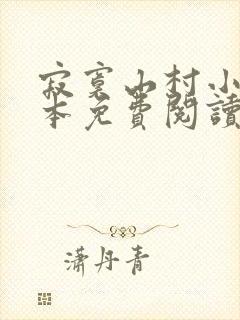 寂寞山村小
本免費閱讀
瀟丹青